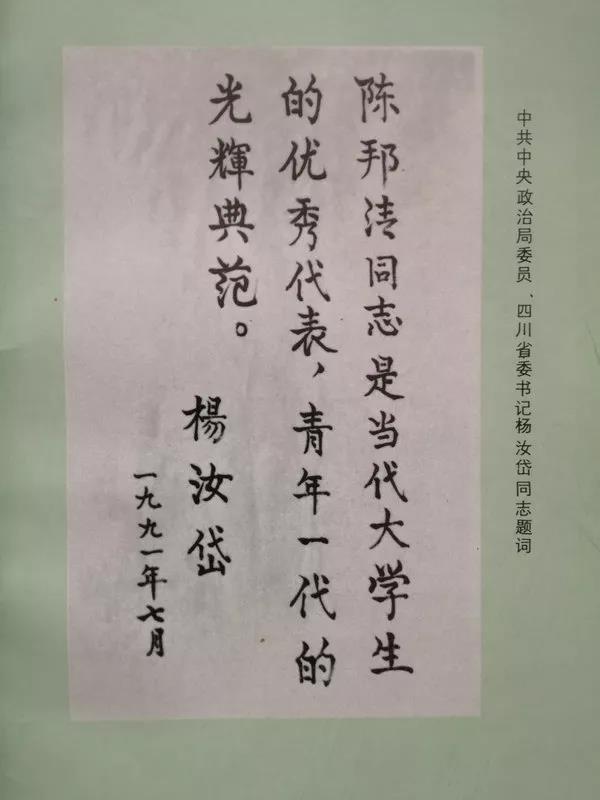 中共中央政治局委员、四川省委书记杨汝岱同志题词
陈邦清同志是当代大学生
的优秀代表，青年一代的
光輝典范。
楊汝岱
一九九一年七月